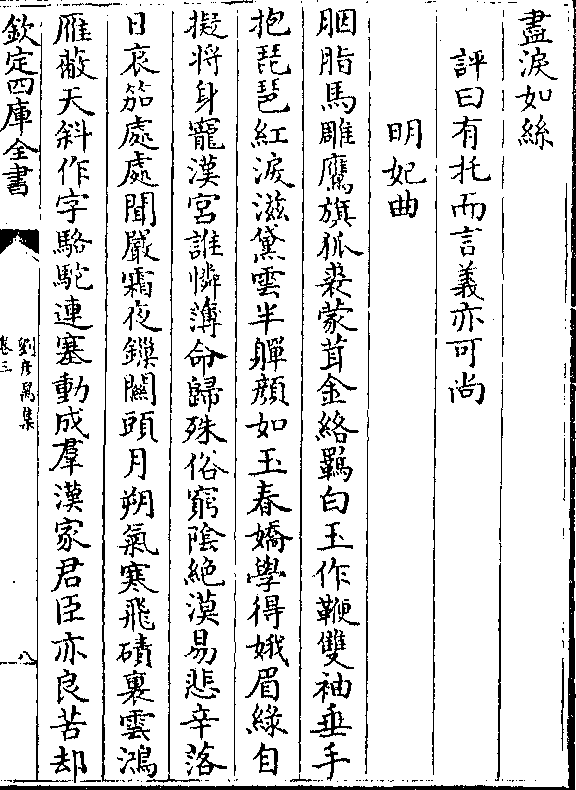 盡淚如絲
評曰有托而言義亦可尚
明妃曲
胭脂馬雕鷹旗狐裘蒙茸金絡羈白玉作鞭雙袖垂手
抱琵琶紅淚滋黛雲半嚲顔如玉春嬌學得娥眉綠自
擬將身寵漢宮誰憐薄命歸殊俗窮陰絶漠易悲辛落
日哀笳處處聞嚴霜夜鏁關頭月朔氣寒飛磧裏雲鴻
雁蔽天斜作字駱駝連塞動成羣漢家君臣亦良苦却
欽定四庫全書
劉彦昺集
卷三
八